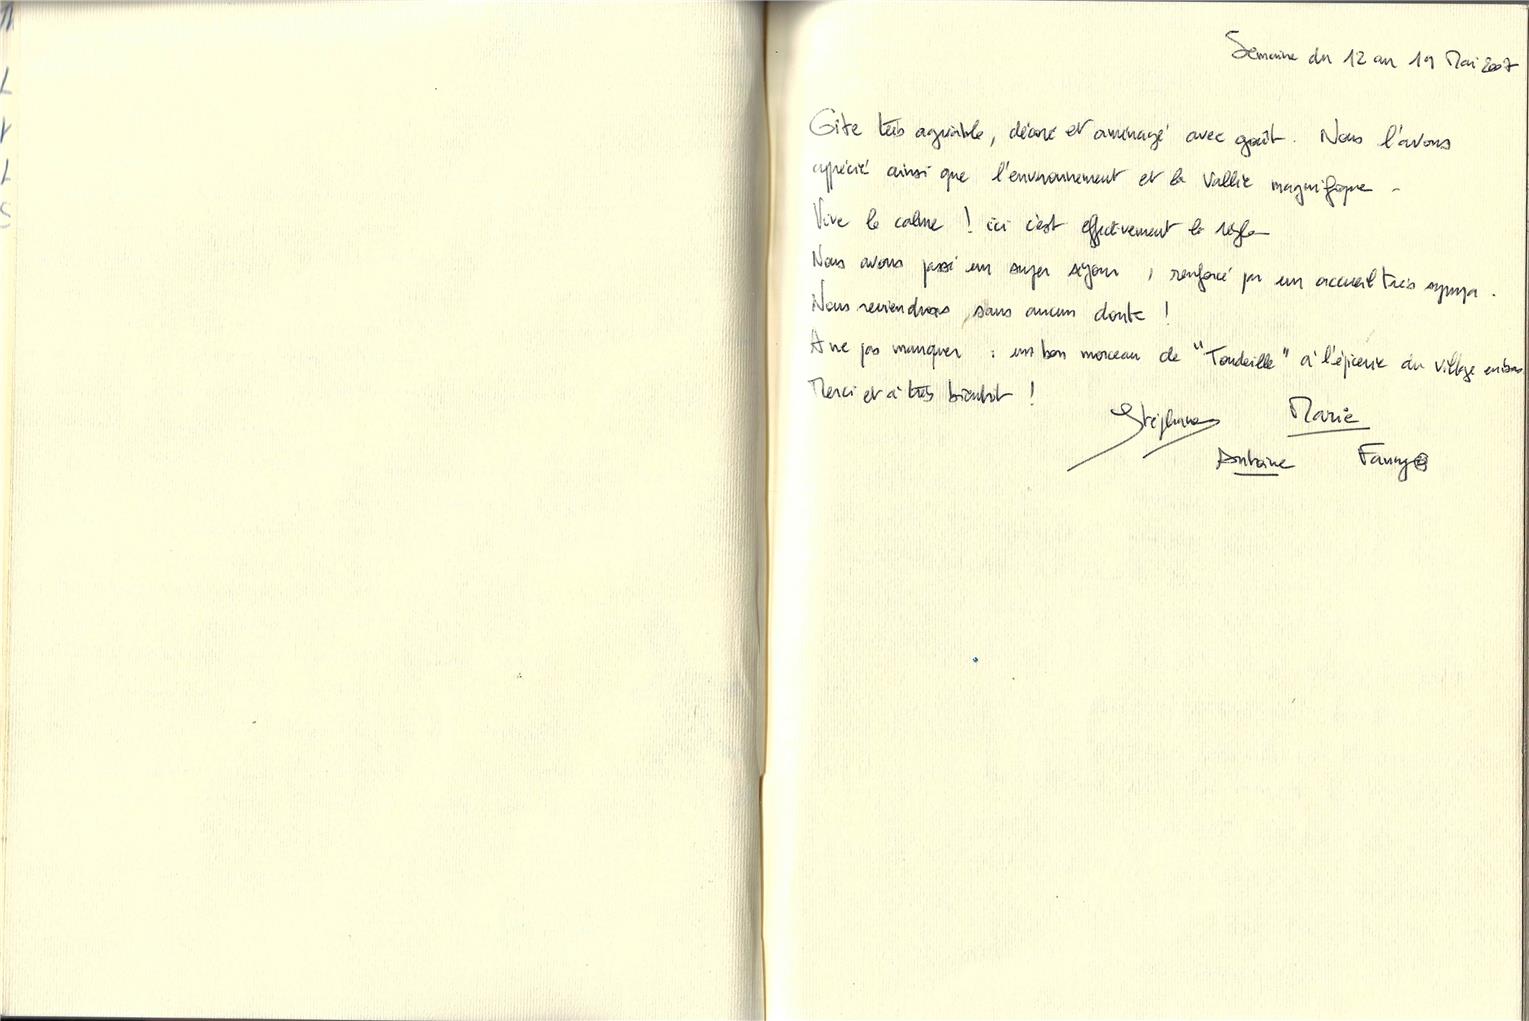 Semaine du 12 au 19 Mai 2007
Gite très agréable, décoré et aménagé avec goût. Nous l'avons
apprécié ainsi que l'environnement et la vallée magnifique -
Vive le calme ! ici c'est effectivement la règle
Nous avons passé un super séjour, renforcé par un accueil très sympa.
Nous reviendrons, sans aucun doute !
A ne pas manquer : un bon morceau de "Toudeille" à l'épicerie du village en bas
Merci et à très bientôt !
Stéphane Marie
Antoine Fanny